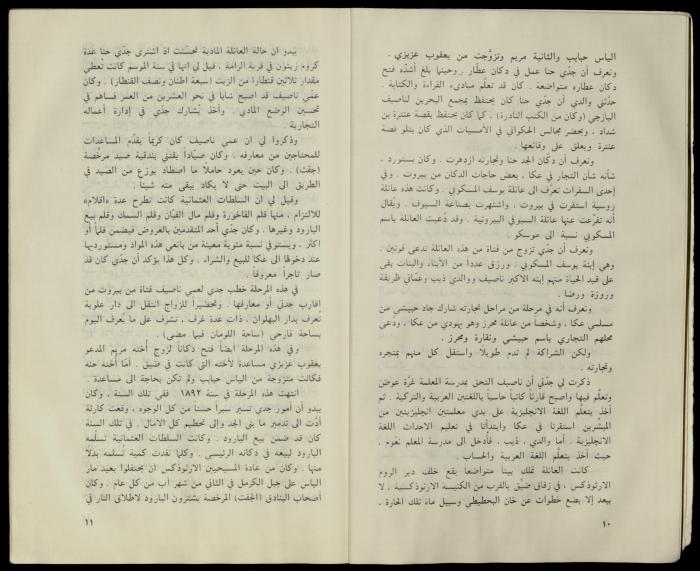 الياس حبايب والثانية مريم وتزوّجت من يعقوب عزيزي .
ونعرف أن جدّي حنا عمل في دكان عطّار . وحينما بلغ أشدّه فتح
دكان عطاره متواضعة . كان قد تعلّم مبادىء القراءة والكتابة .
حدّثني والدي أن جدّي حنا كان يحتفظ بمجمع البحرين لناصيف
اليازجي (وكان من الكتب النادرة) ، كما كان يحتفظ بقصة عنترة بن
شداد ، ويحضر مجالس الحكواتي في الأمسيات الذي كان يتلو قصة
عنترة ويعلق على وقائعها .
ونعرف أن دكان الجد حنا وتجارته ازدهرت . وكان يستورد ،
شأنه شأن التجار في عكا ، بعض حاجات الدكان من بيروت . وفي
إحدى السفرات تعرف الى عائلة يوسف المسكوبي . وكانت هذه عائلة
روسية استقرت في بيروت ، واشتهرت بصناعة السيوف . ويُقال
أنه تفرّعت عنها عائلة السيوفي البيروتية . وقد دُعيت العائلة باسم
المسكوبي نسبة الى موسكو .
ونعرف أن جدّي تزوج من فتاة من هذه العائلة تدعى فوتين .
وهي إبنة يوسف المسكوبي . ورزق عددا من الأبناء والبنات بقي
على قيد الحياة منهم إبنه الاكبر ناصيف ووالدي ذيب وعمّاتي ظريفة
وروزة ورضا .
ونعرف أنه في مرحلة من مراحل تجارته شارك جاد حبيشي من
مسلمي عكا ، وشخصًا من عائلة محرز وهو يهودي من عكا ، ودُعي
محلهم التجاري باسم حبيشي ونقارة ومحرز .
ولكن الشراكة لم تدم طويلا واستقل كل منهم بمتجره
وتجارته .
ذكرت لي جدّتي أن ناصيف التحق بمدرسة المعلمة غرّة عوض
وتعلّم فيها واصبح قارئا كاتبا حاسبا باللغتين العربية والتركية . ثم
أخذ يتعلّم اللغة الانجليزية على يدي معلمتين انجليزيتين من
المبشّرين استقرنا في عكا وابتدأتا في تعليم الاحداث اللغة
الانجليزية . أما والدي ، ذيب ، فأدخل الى مدرسة المعلم نعّوم ،
حيث أخذ يتعلّم اللغة العربية والحساب .
كانت العائلة تملك بيتا متواضعا يقع خلف دير الروم
الارثوذكس ، في زقاق ضيّق بالقرب من الكنيسة الارثوذكسية . لا
يبعد إلا بضع خطوات عن خان البحطيطي وسبيل ماء تلك الحارة .
١٠
يبدو ان حالة العائلة المادية تحسّنت اذ اشترى جدّي حنا عدة
كروم زيتون في قرية الرامة . قيل لي انها في سنة الموسم كانت تُعطي
مقدار ثلاثين قنطارا من الزيت (سبعة اطنان ونصف القنطار) . وكان
عمّي ناصيف قد اصبح شابا في نحو العشرين من العمر فساهم في
تحسين الوضع المادي . وأخذ يُشارك جدّي في إدارة أعماله
التجارية .
وذكروا لي ان عمي ناصيف كان كريمًا يقدّم المساعدات
للمحتاجين من معارفه . وكان صيّادًا يقتني بندقية صيد مرخّصة
(جفت) . وكان حين يعود حاملاً ما اصطاد يوزع من الصيد في
الطريق الى البيت حتى لا يكاد يبقى منه شيئا .
وقيل لي ان السلطات العثمانية كانت تطرح عدة «اقلام»
للالتزام ، منها قلم الفاخورة وقلم مال القبّان وقلم السمك وقلم بيع
البارود وغيرها . وكان جدي أحد المتقدمين بالعروض فيضمن قلمًا أو
اكثر . ويستوفي نسبة مئوية معينة من بائعي هذه المواد ومستورديها
عند دخولها الى عكا للبيع والشراء . وكل هذا يؤكد أن جدّي كان قد
صار تاجراً معروفاً .
في هذه المرحلة خطب جدي لعمي ناصيف فتاة من بيروت من
اقارب جدتي أو معارفها . وتحضيراً للزواج انتقل الى دار علوية
تعرف بدار البهلوان ، ذات عدة غرف ، تشرف على ما يُعرف اليوم
بساحة فارحي (ساحة اللومان فيما مضى) .
وفي هذه المرحلة أيضاً فتح دكاناً لزوج أخته مريم المدعو
يعقوب عزيزي مساعدة لأخته التي كانت في ضيق . أمّا أخته حنه
فكانت متزوجة من الياس حبايب ولم تكن بحاجة الى مساعدة .
انتهت هذه المرحلة في سنة ١٨٩٢ . ففي تلك السنة ، وكان
يبدو أن أمور جدي تسير سيراً حسنا من كل الوجوه ، وقعت كارثة
أدّت الى تدمير ما بنى الجد وإلى تحطيم كل الآمال . في تلك السنة
كان قد ضمن بيع البارود . وكانت السلطات العثمانية تسلّمه
البارود لبيعه في دكانه الرئيسي . وكلما نفدت كمية تسلّمه بدلا
منها . وكان من عادة المسيحيين الارثوذكس ان يحتفلوا بعيد مار
الياس على جبل الكرمل في الثاني من شهر آب من كل عام . وكان
أصحاب البنادق (الجفت) المرخصة يشترون البارود لاطلاق النار في
١١